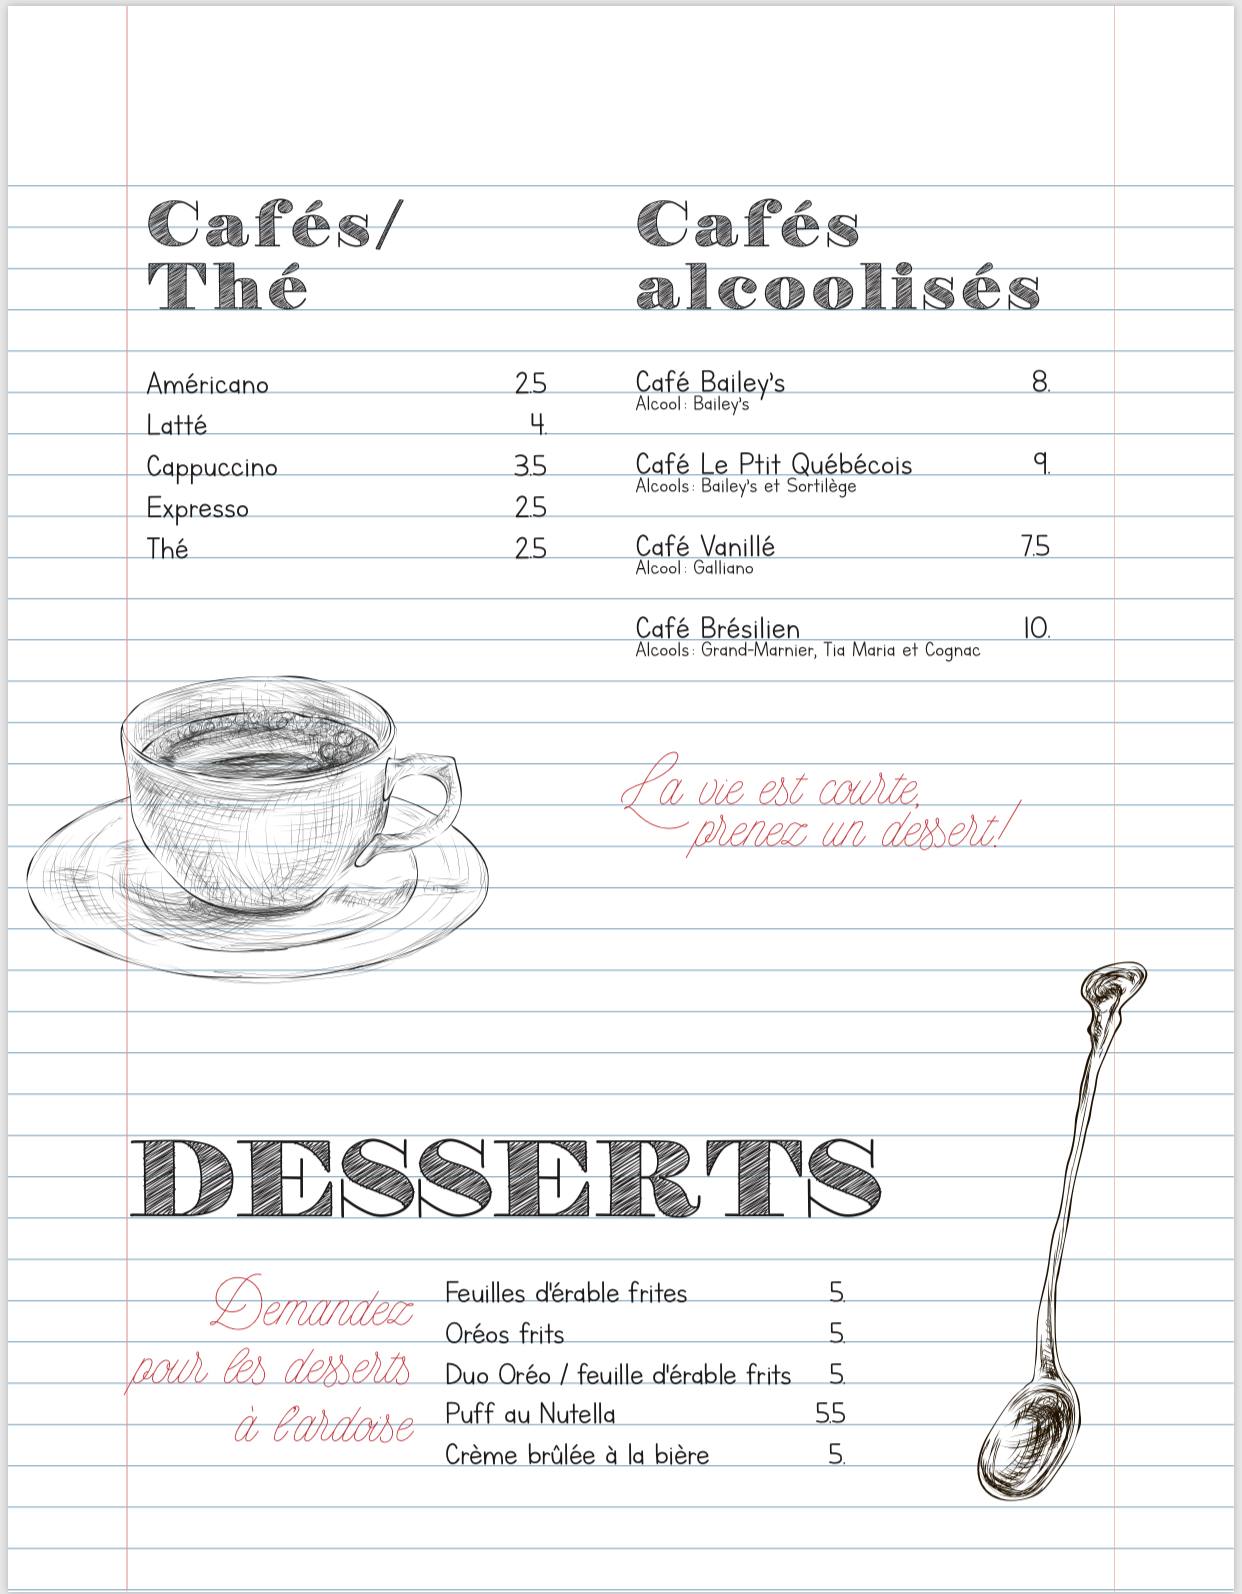 Cafés/
Thé
Américano 2.5
Latté 4.
Cappuccino 3.5
Expresso 2.5
Thé 2.5
Cafés
alcoolisés
Café Bailey's 8.
Alcool : Bailey's
Café Le Ptit Québécois 9.
Alcools : Bailey's et Sortilège
Café Vanillé 7.5
Alcool : Galliano
Café Brésilien 10.
Alcools : Grand-Marnier, Tia Maria et Cognac
La vie est courte,
prenez un dessert!
DESSERTS
Demandez
pour les desserts
à l'ardoise
Feuilles d'érable frites 5.
Oréos frits 5.
Duo Oréo / feuille d'érable frits 5.
Puff au Nutella 5.5
Crème brûlée à la bière 5.